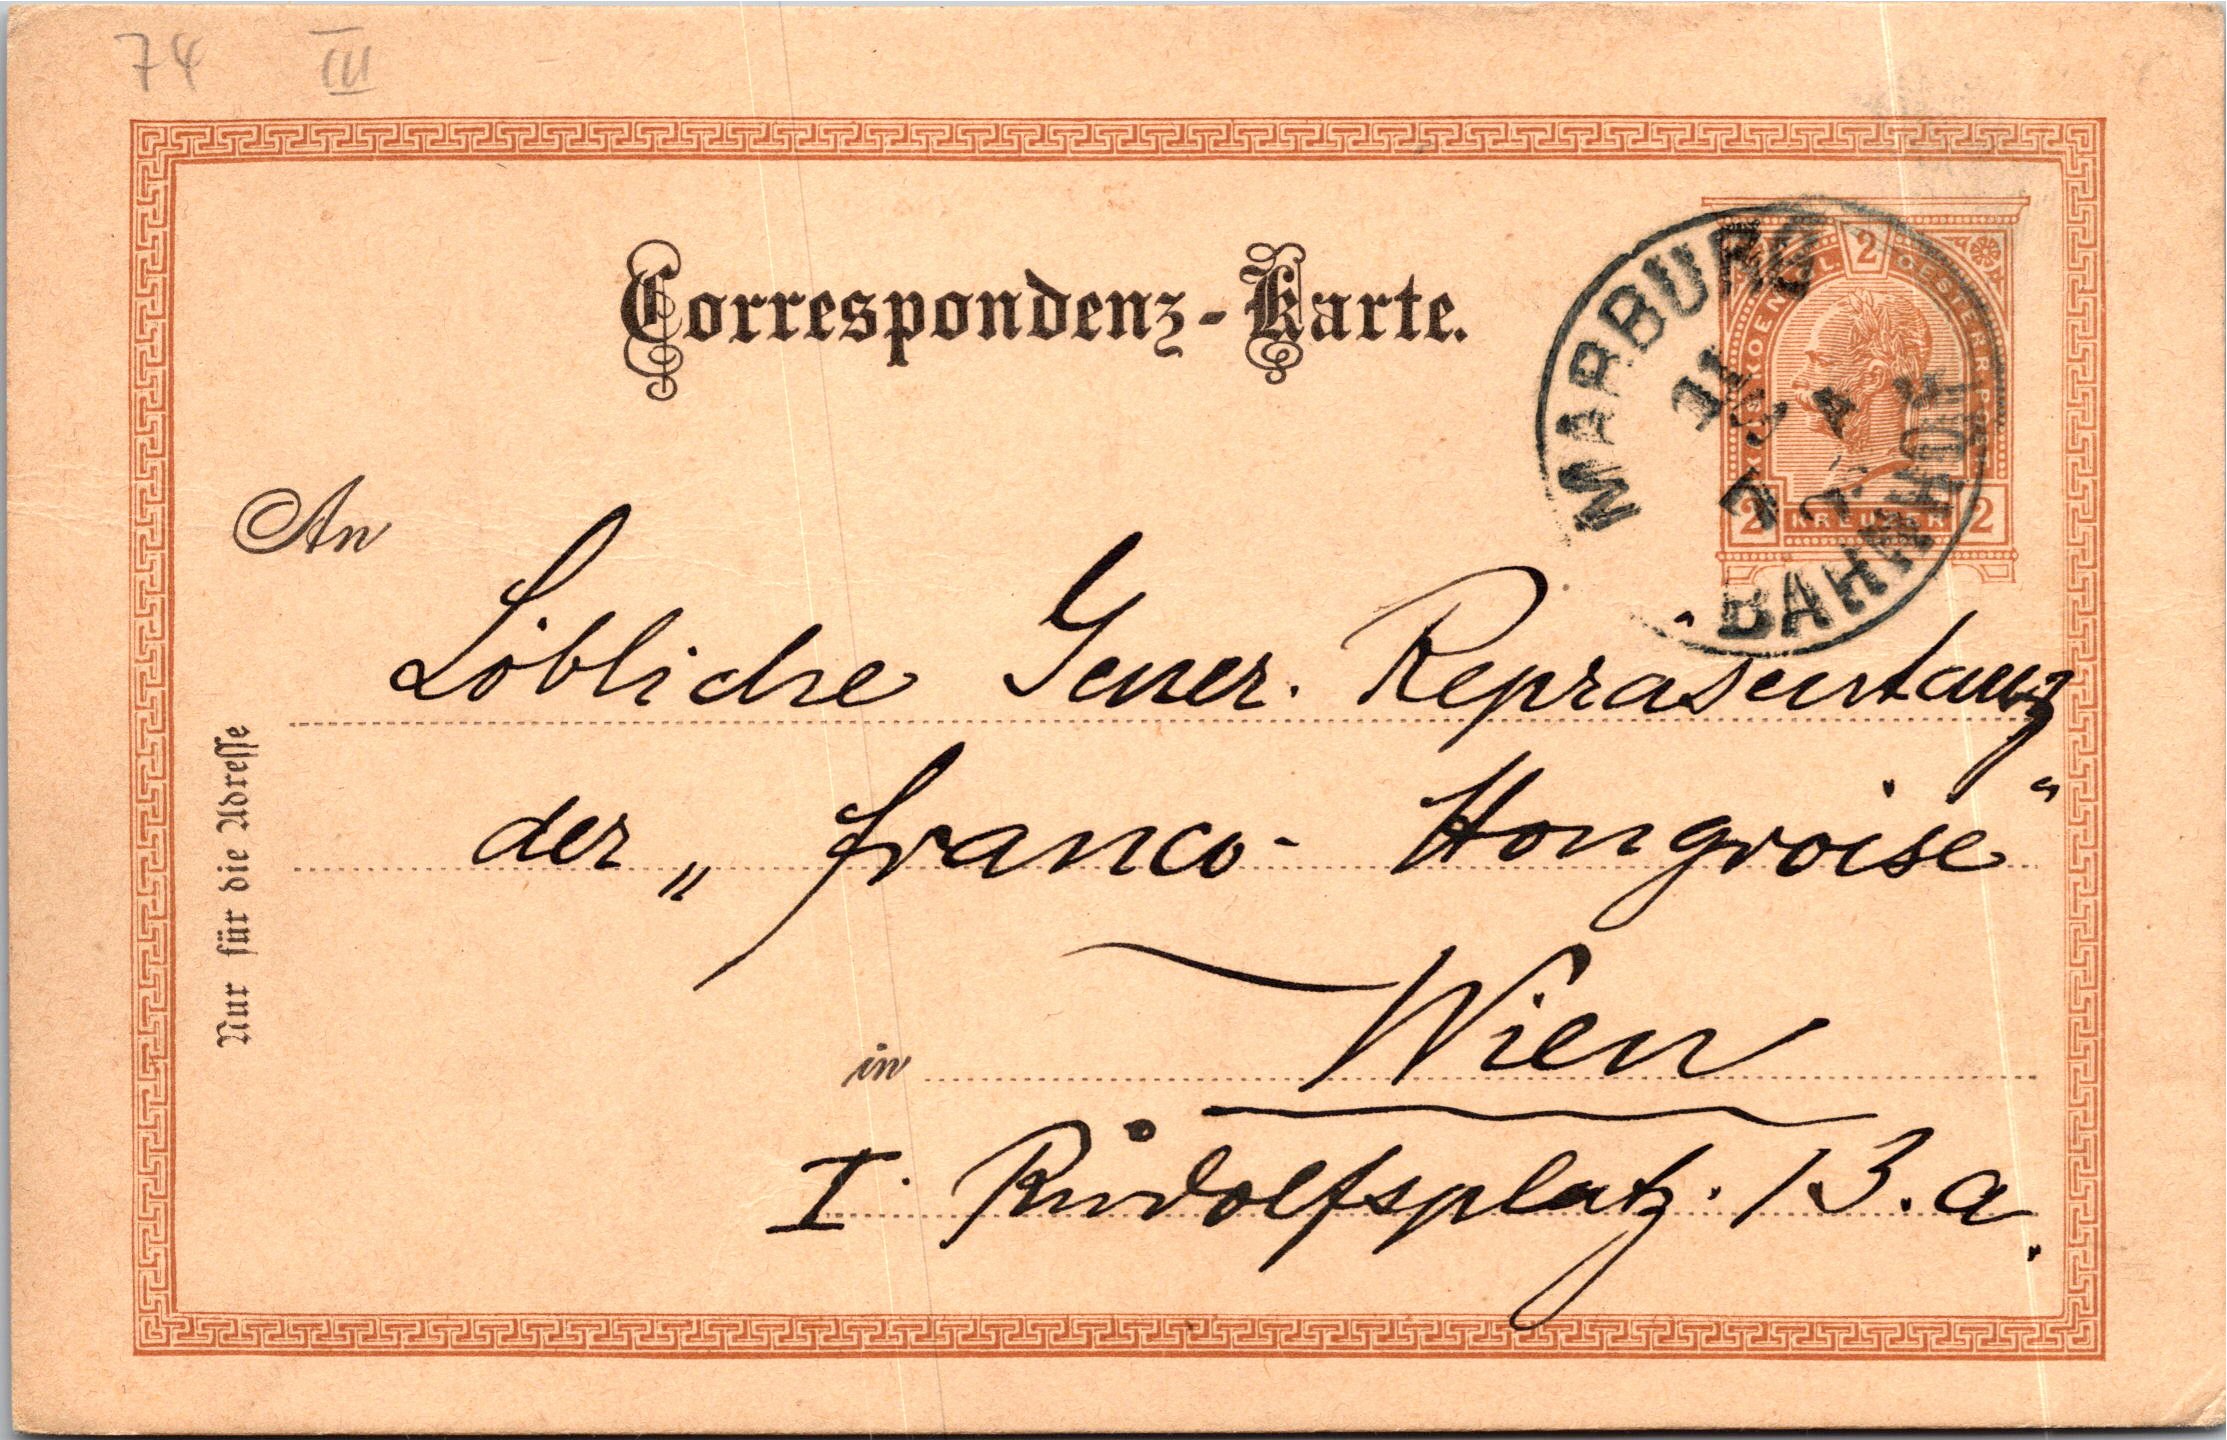 74 III
Correspondenz-Karte.
KAIS. KOENIGL. 2 OESTERR. POST
2 KREUZER 2
MARBURG
BAHNHOF
An
Löbliche Gener. Repräsentanz
der „ franco- Hongroise “
Nur für die Adresse
in Wien
I. Rudolfsplatz. 13. a.